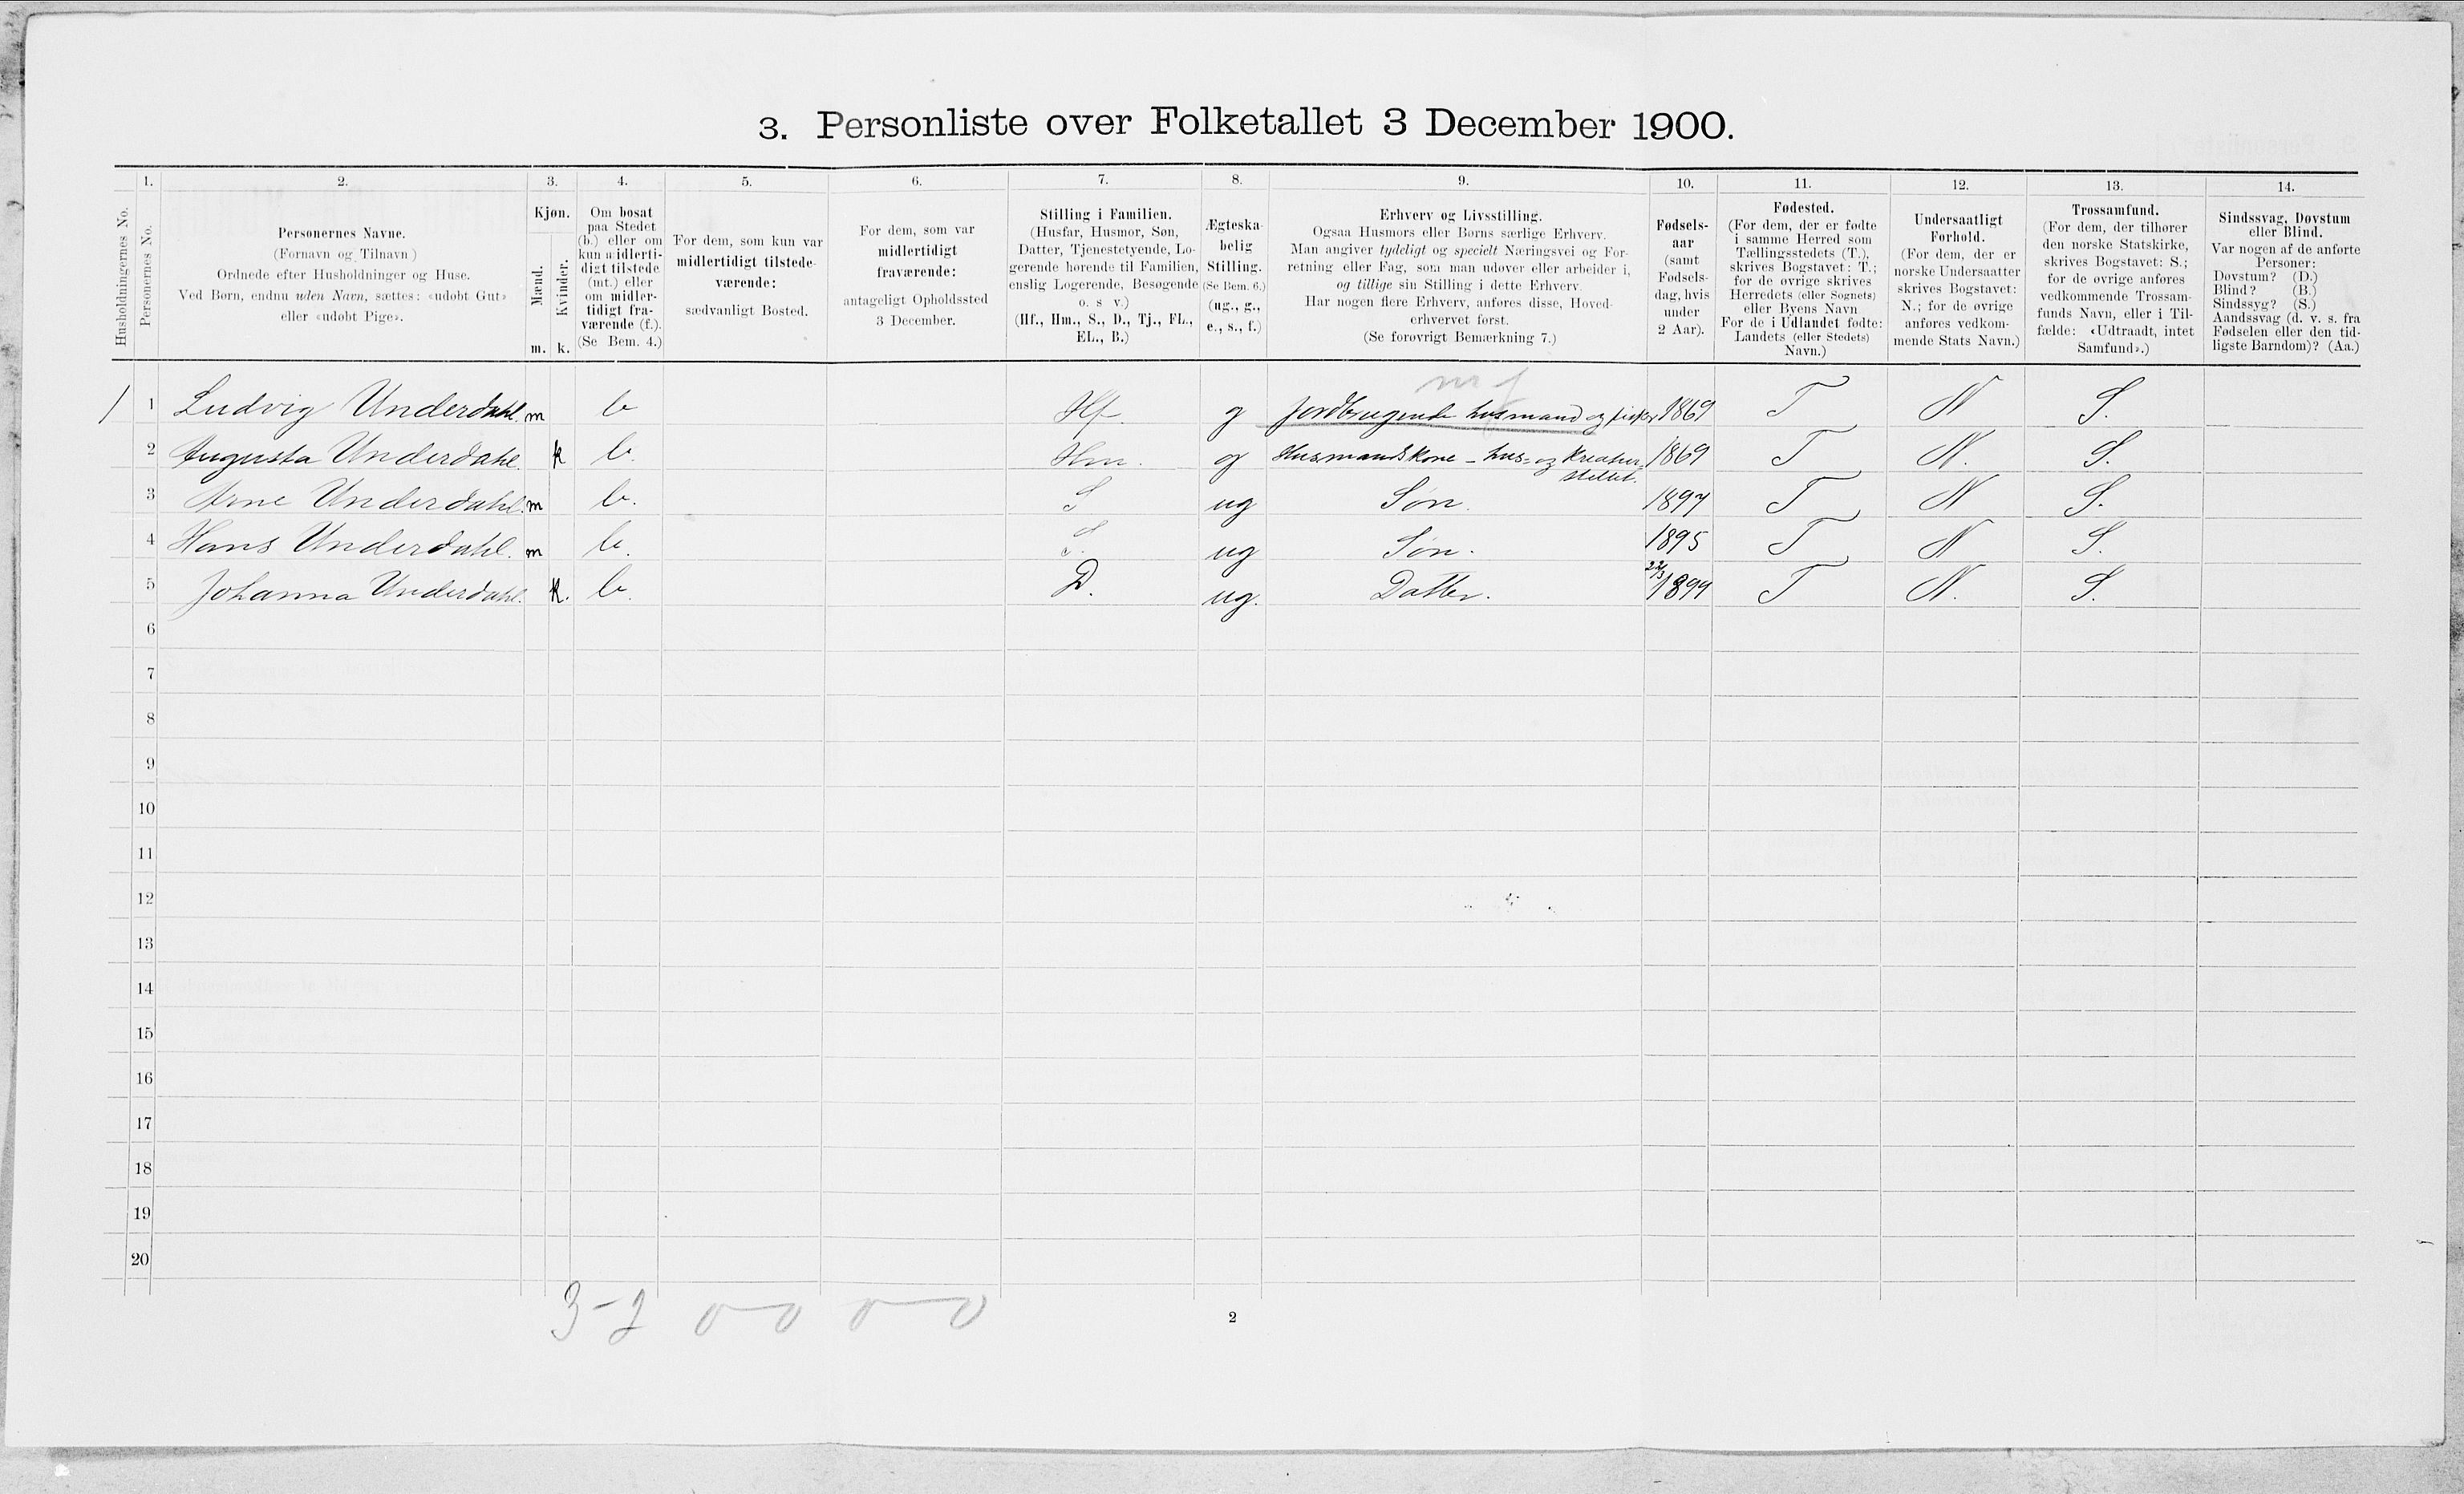 3. Personliste over Folketallet 3 December 1900.
Husholdningernes No.
1.
Personernes No.
2.
Personernes Navne.
(Fornavn og Tilnavn)
Ordnede efter Husholdninger og Huse.
Ved Børn, endnu uden Navn, sættes: «udøbt Gut»
eller «udøbt Pige».
3.
Kjøn.
Mænd.
Kvinder.
m. k.
4.
Om bosat
paa Stedet
(b.) eller om
kun midlerti-
digt tilstede
(mt.) eller
om midler-
tidigt fra-
værende (f.).
(Se Bem. 4.)
5.
For dem, som kun var
midlertidigt tilstede-
værende:
sædvanligt Bosted.
6.
For dem, som var
midlertidigt
fraværende:
antageligt Opholdssted
3 December.
7.
Stilling i Familien.
(Husfar, Husmor, Søn,
Datter, Tjenestetyende, Lo-
gerende hørende til Familien,
enslig Logerende, Besøgende
o. s v.)
(Hf., Hm., S., D., Tj., FL.,
EL., B.)
8.
Ægteska-
belig
Stilling.
(Se Bem. 6.)
(ug., g.,
e., s., f.)
9.
Erhverv og Livsstilling.
Ogsaa Husmors eller Børns særlige Erhverv.
Man angiver tydeligt og specielt Næringsvei og For-
retning eller Fag, som man udøver eller arbeider i,
og tillige sin Stilling i dette Erhverv.
Har nogen flere Erhverv, anføres disse, Hoved-
erhvervet først.
(Se forøvrigt Bemærkning 7.)
10.
Fødsels-
aar
(samt
Fødsels-
dag, hvis
under
2 Aar).
11.
Fødested.
(For dem, der er fødte
i samme Herred som
Tællingsstedets (T.),
skrives Bogstavet: T.;
for de øvrige skrives
Herredets (eller Sognets)
eller Byens Navn
For de i Udlandet fødte:
Landets (eller Stedets)
Navn.)
12.
Undersaatligt
Forhold.
(For dem, der er
norske Undersaatter
skrives Bogstavet:
N.; for de øvrige
anføres vedkom-
mende Stats Navn.)
13.
Trossamfund.
(For dem, der tilhører
den norske Statskirke,
skrives Bogstavet: S.;
for de øvrige anføres
vedkommende Trossam-
funds Navn, eller i Til-
fælde: «Udtraadt, intet
Samfund».)
14.
Sindssvag, Døvstum
eller Blind.
Var nogen af de anførte
Personer:
Døvstum? (D.)
Blind? (B.)
Sindssyg? (S.)
Aandssvag (d. v. s. fra
Fødselen eller den tid-
ligste Barndom)? (Aa.)
m f
1 1 Ludvig Underdahl. m b Hf. g Jordbrugende husmand og fisker 1869 T N S.
2 Augusta Underdahl. k b. Hm. g Husmandskone - hus- og kreatur- 1869 T N. S.
stellet.
3 Arne Underdahl. m b. S ug Søn. 1897 T N S.
4 Hans Underdahl. m b. S. ug Søn. 1895 T N S.
5 Johanna Underdahl. k. b. D. ug. Datter. 22/3 1899 T N. S.
6
7
8
9
10
11
12
13
14
15
16
17
18
19
20
3-2 0-0 0-0
2